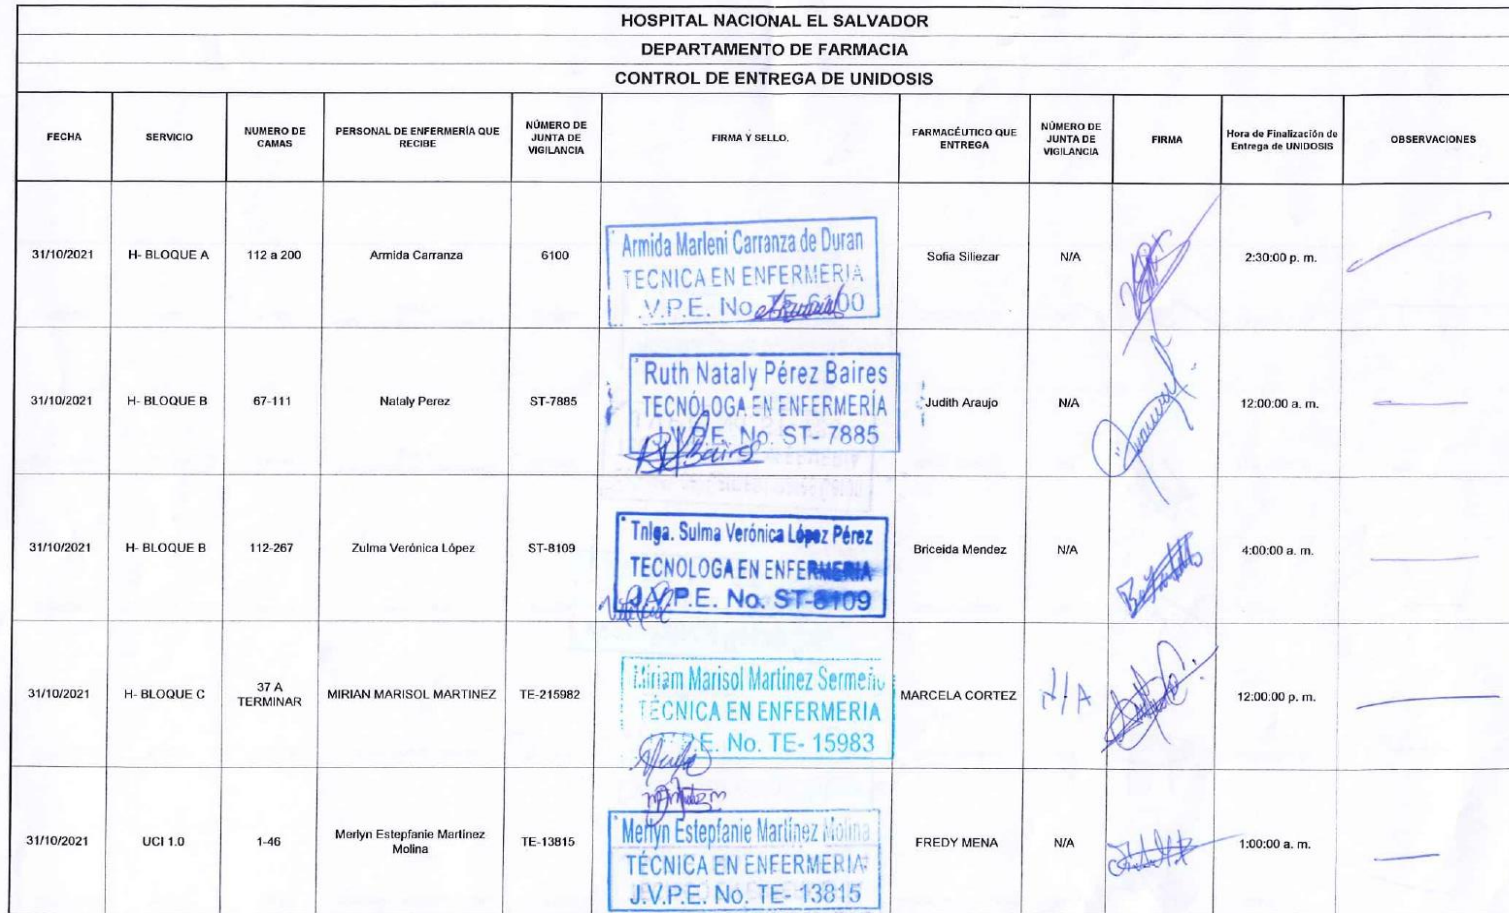 HOSPITAL NACIONAL EL SALVADOR
DEPARTAMENTO DE FARMACIA
CONTROL DE ENTREGA DE UNIDOSIS
FECHA
SERVICIO
NUMERO DE
CAMAS
PERSONAL DE ENFERMERÍA QUE
RECIBE
NÚMERO DE
JUNTA DE
VIGILANCIA
FIRMA Y SELLO.
FARMACÉUTICO QUE
ENTREGA
NÚMERO DE
JUNTA DE
VIGILANCIA
FIRMA
Hora de Finalización de
Entrega de UNIDOSIS
OBSERVACIONES
31/10/2021
H- BLOQUE A
112 a 200
Armida Carranza
6100
Armida Marleni Carranza de Duran
TECNICA EN ENFERMERIA
J.V.P.E. No. TE-6100
Sofia Siliezar
N/A
2:30:00 p. m.
31/10/2021
H- BLOQUE B
67-111
Nataly Perez
ST-7885
Ruth Nataly Pérez Baires
TECNÓLOGA EN ENFERMERÍA
J.V.P.E. No. ST- 7885
Judith Araujo
N/A
12:00:00 a. m.
31/10/2021
H- BLOQUE B
112-267
Zulma Verónica López
ST-8109
Tnlga. Sulma Verónica López Pérez
TECNOLOGA EN ENFERMERIA
J.V.P.E. No. ST-8109
Briceida Mendez
N/A
4:00:00 a. m.
31/10/2021
H- BLOQUE C
37 A
TERMINAR
MIRIAN MARISOL MARTINEZ
TE-215982
Miriam Marisol Martínez Sermeño
TÉCNICA EN ENFERMERIA
P.E. No. TE- 15983
MARCELA CORTEZ
N/A
12:00:00 p. m.
31/10/2021
UCI 1.0
1-46
Merlyn Estepfanie Martínez
Molina
TE-13815
Merlyn Estepfanie Martínez Molina
TÉCNICA EN ENFERMERIA
J.V.P.E. No. TE- 13815
FREDY MENA
N/A
1:00:00 a. m.